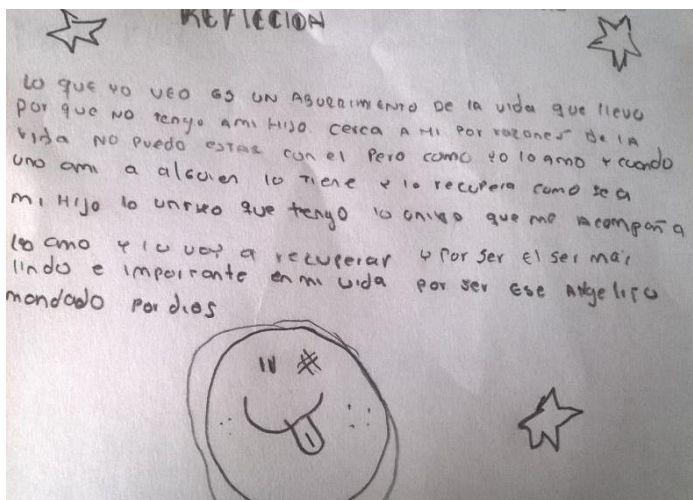 REFLECCION
Lo que yo veo es un aburrimiento de la vida que llevo
por que no tengo ami Hijo cerca a mi por razones de la
vida no puedo estar con el pero como yo lo amo y cuando
uno ami a alguien lo tiene y lo recupera como sea
mi Hijo lo unico que tengo lo unico que me acompaña
lo amo y lo voy a recuperar y por ser el ser mas
lindo e importante en mi vida por ser ese angelito
mandado por dios